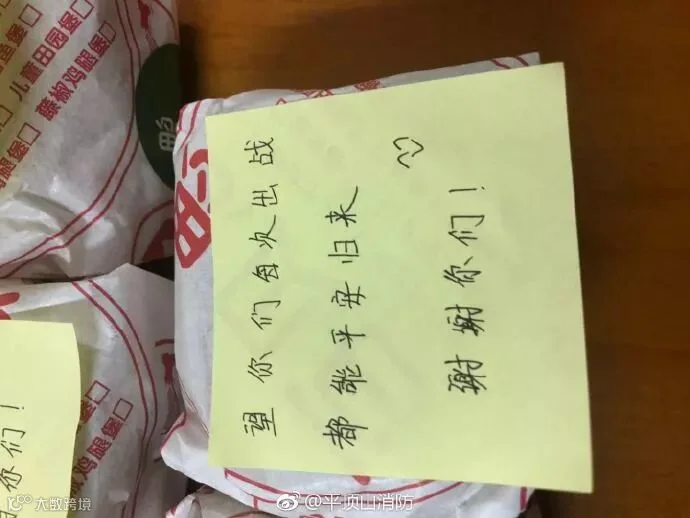 望你们每次出战
都能平安归来
谢谢你们！
你们！
儿童田园堡□
藤椒鸡腿堡□
鸡腿堡□
大数跨境
@平顶山消防